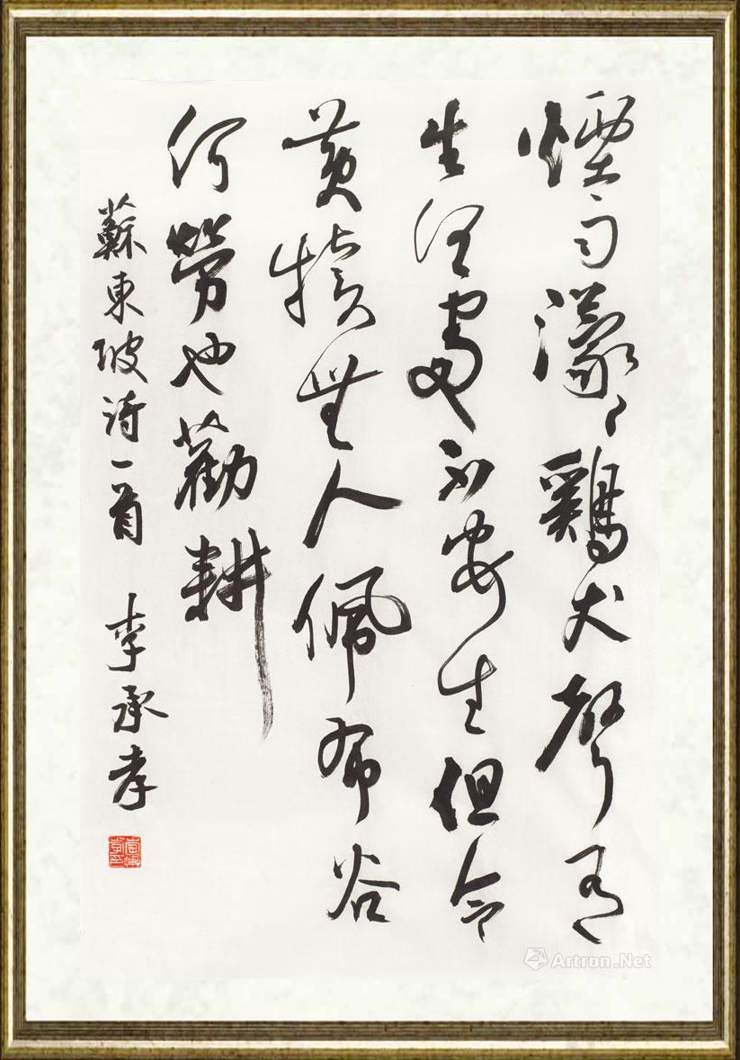 煙雨濛〻鷄犬聲有
生何處不安生但令
黃犢無人佩布谷
何勞也勸耕
蘇東坡詩一首 李承孝
Artron.Net